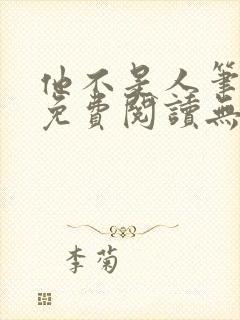 他不是人筆
免費閱讀無
李菊